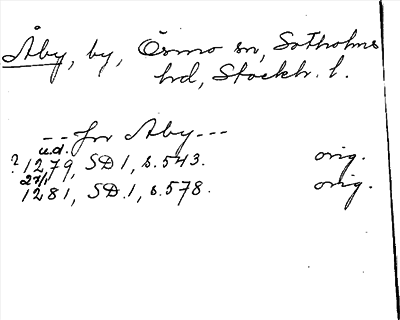 Åby, by, Ösmo sn, Sotholms
hd, Stockh. l.
--- for Åby ---
u.d.
? 1279, SD 1, s. 543. orig.
27/1
1281, SD. 1, s. 578. orig.